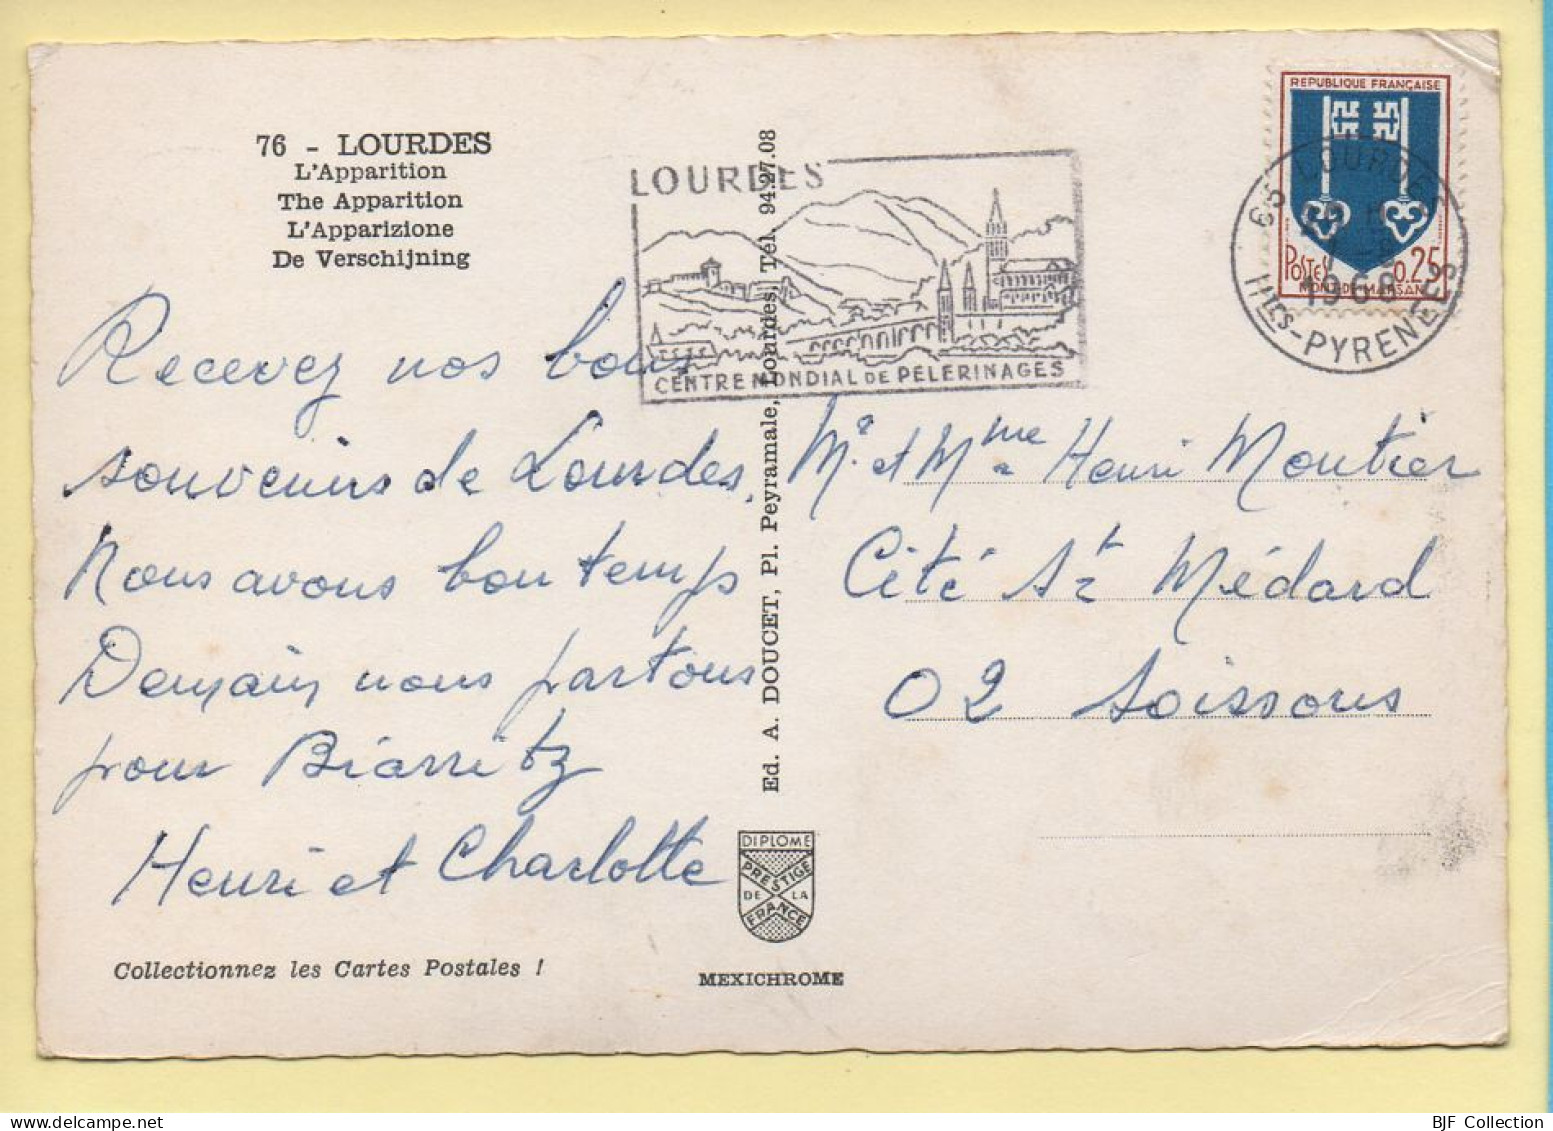 76 - LOURDES
L'Apparition
The Apparition
L'Apparizione
De Verschijning
Recevez nos bons
souvenirs de Lourdes.
Nous avons bon temps
Demain nous partons
pour Biarritz
Henri et Charlotte
Collectionnez les Cartes Postales !
Ed. A. DOUCET, Pl. Peyramale, Lourdes, Tél. 94.27.08
DIPLOME
PRESTIGE
DE LA
FRANCE
MEXICHROME
LOURDES
CENTRE MONDIAL DE PÈLERINAGES
REPUBLIQUE FRANÇAISE
POSTES 0,25
MONT-DE-MARSAN
65 LOURDES
1966
HTES-PYRENEES
Mr. et Mme Henri Moutier
Cité St Médard
02 Soissons
BJF Collection